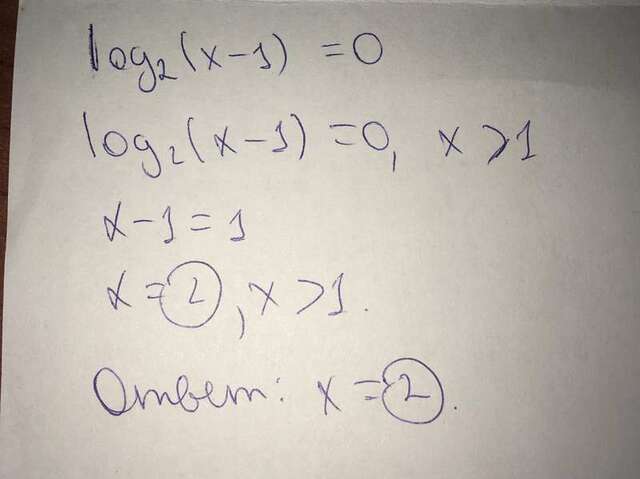 log₂(x-1) = 0
log₂(x-1) = 0, x > 1
x-1 = 1
x = 2, x > 1.
Ответ: x = 2.